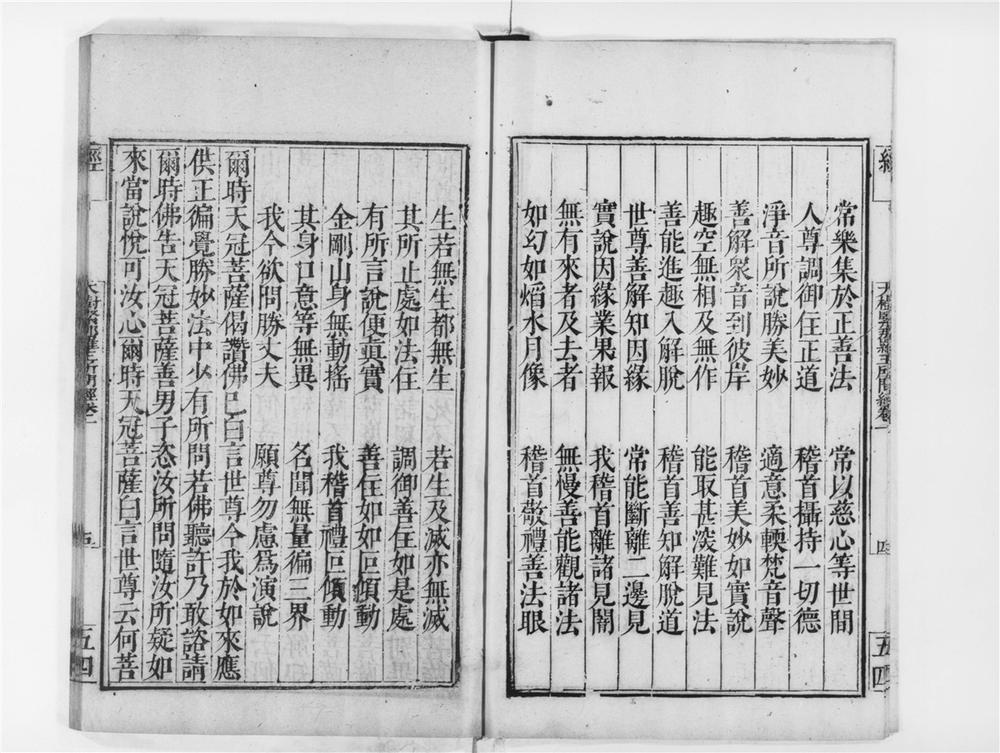 經 大樹緊那羅王所問經卷一 四 五四
常樂集於正善法 常以慈心等世間
人尊調御住正道 稽首攝持一切德
淨音所說勝美妙 適意柔輭梵音聲
善解眾音到彼岸 稽首美妙如實說
趣空無相及無作 能取甚深難見法
善能進趣入解脫 稽首善知解脫道
世尊善解知因緣 常能斷離二邊見
實說因緣業果報 我稽首離諸見闇
無有來者及去者 無慢善能觀諸法
如幻如熖水月像 稽首敬禮善法眼
生若無生都無生 若生及滅亦無滅
其所止處如法住 調御善住如是處
有所言說使眞實 善住如如叵傾動
金剛山身無動搖 我稽首禮叵傾動
其身口意等無異 名聞無量徧三界
我今欲問勝丈夫 願尊勿慮爲演說
爾時天冠菩薩偈讚佛已白言世尊今我於如來應
供正徧覺勝妙法中少有所問若佛聽許乃敢諮請
爾時佛告天冠菩薩善男子恣汝所問隨汝所疑如
來當說悅可汝心爾時天冠菩薩白言世尊云何菩
經 大樹緊那羅王所問經卷一 五 五四